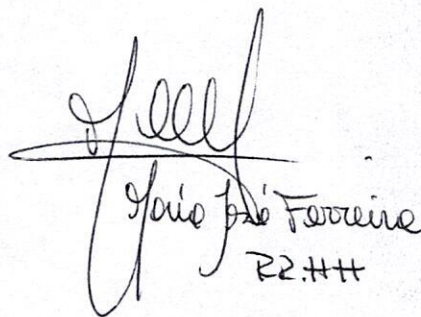 María José Ferreira
RR.HH